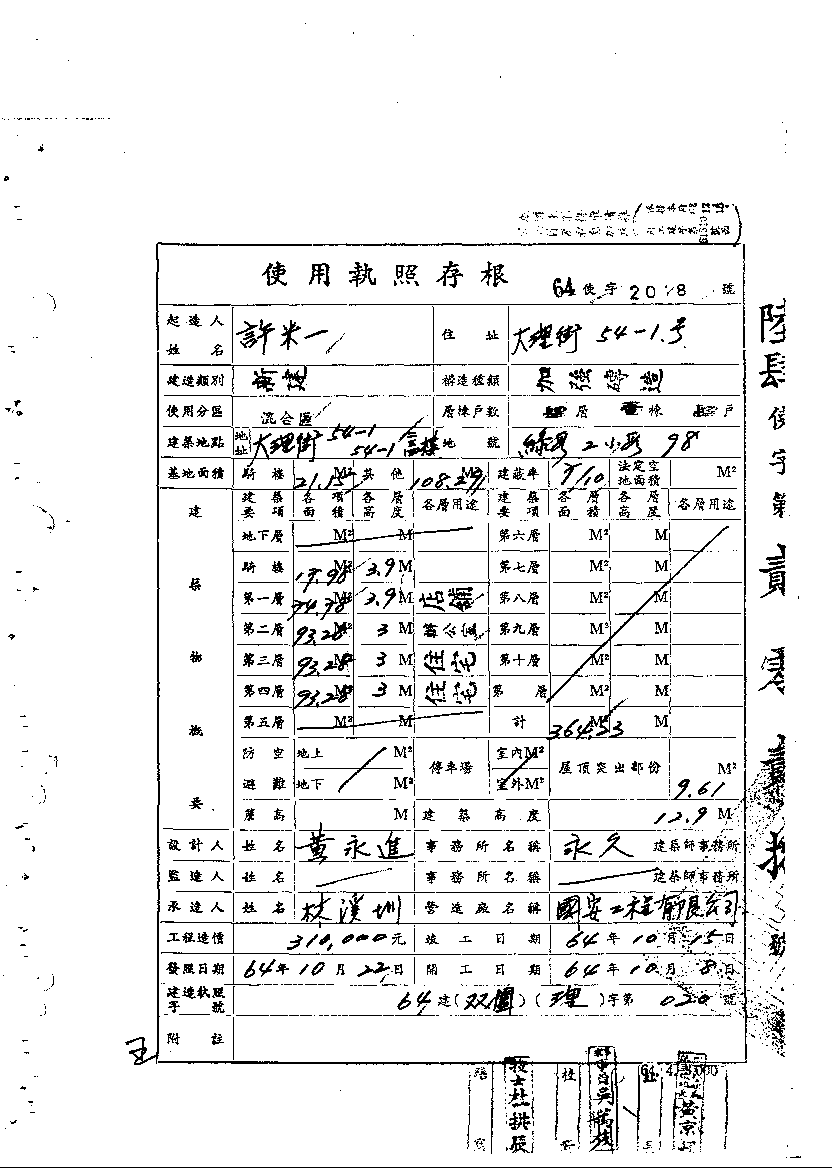 使用執照存根
64 使字 2018 號
起造人姓名 許米一 住址 大理街 54-1号
建造類別 新建 構造種類 加強磚造
使用分區 混合區 層棟戶數 層 棟 戶
建築地點 地址 大理街 54-1 54-1 地號 綠段 2小段 98
基地面積 騎樓 21.15 M² 其他 108.291 M² 建蔽率 7/10 法定空地面積 M²
建築物概要
建築要項 各項面積 各層高度 各層用途 建築要項 各層面積 各層高度 各層用途
地下層 M² M 第六層 M² M
騎樓 17.98 M² 3.9 M 第七層 M² M
第一層 74.78 M² 3.9 M 店鋪 第八層 M² M
第二層 93.28 M² 3 M 辦公室 第九層 M² M
第三層 93.28 M² 3 M 住宅 第十層 M² M
第四層 93.28 M² 3 M 住宅 第 層 M² M
第五層 M² M 計 364.53 M² M
防空避難 地上 M² 停車場 室內M² 屋頂突出部份 M²
地下 M² 室外M² 9.61
簷高 M 建築高度 12.9 M
設計人 姓名 黃永進 事務所名稱 永久 建築師事務所
監造人 姓名 事務所名稱 建築師事務所
承造人 姓名 林溪圳 營造廠名稱 國安工程有限公司
工程造價 310,000元 竣工日期 64年10月15日
發照日期 64年10月22日 開工日期 64年10月8日
建造執照字號 64建(双園)(理)字第020號
附註
陸肆使字第貳零壹捌號